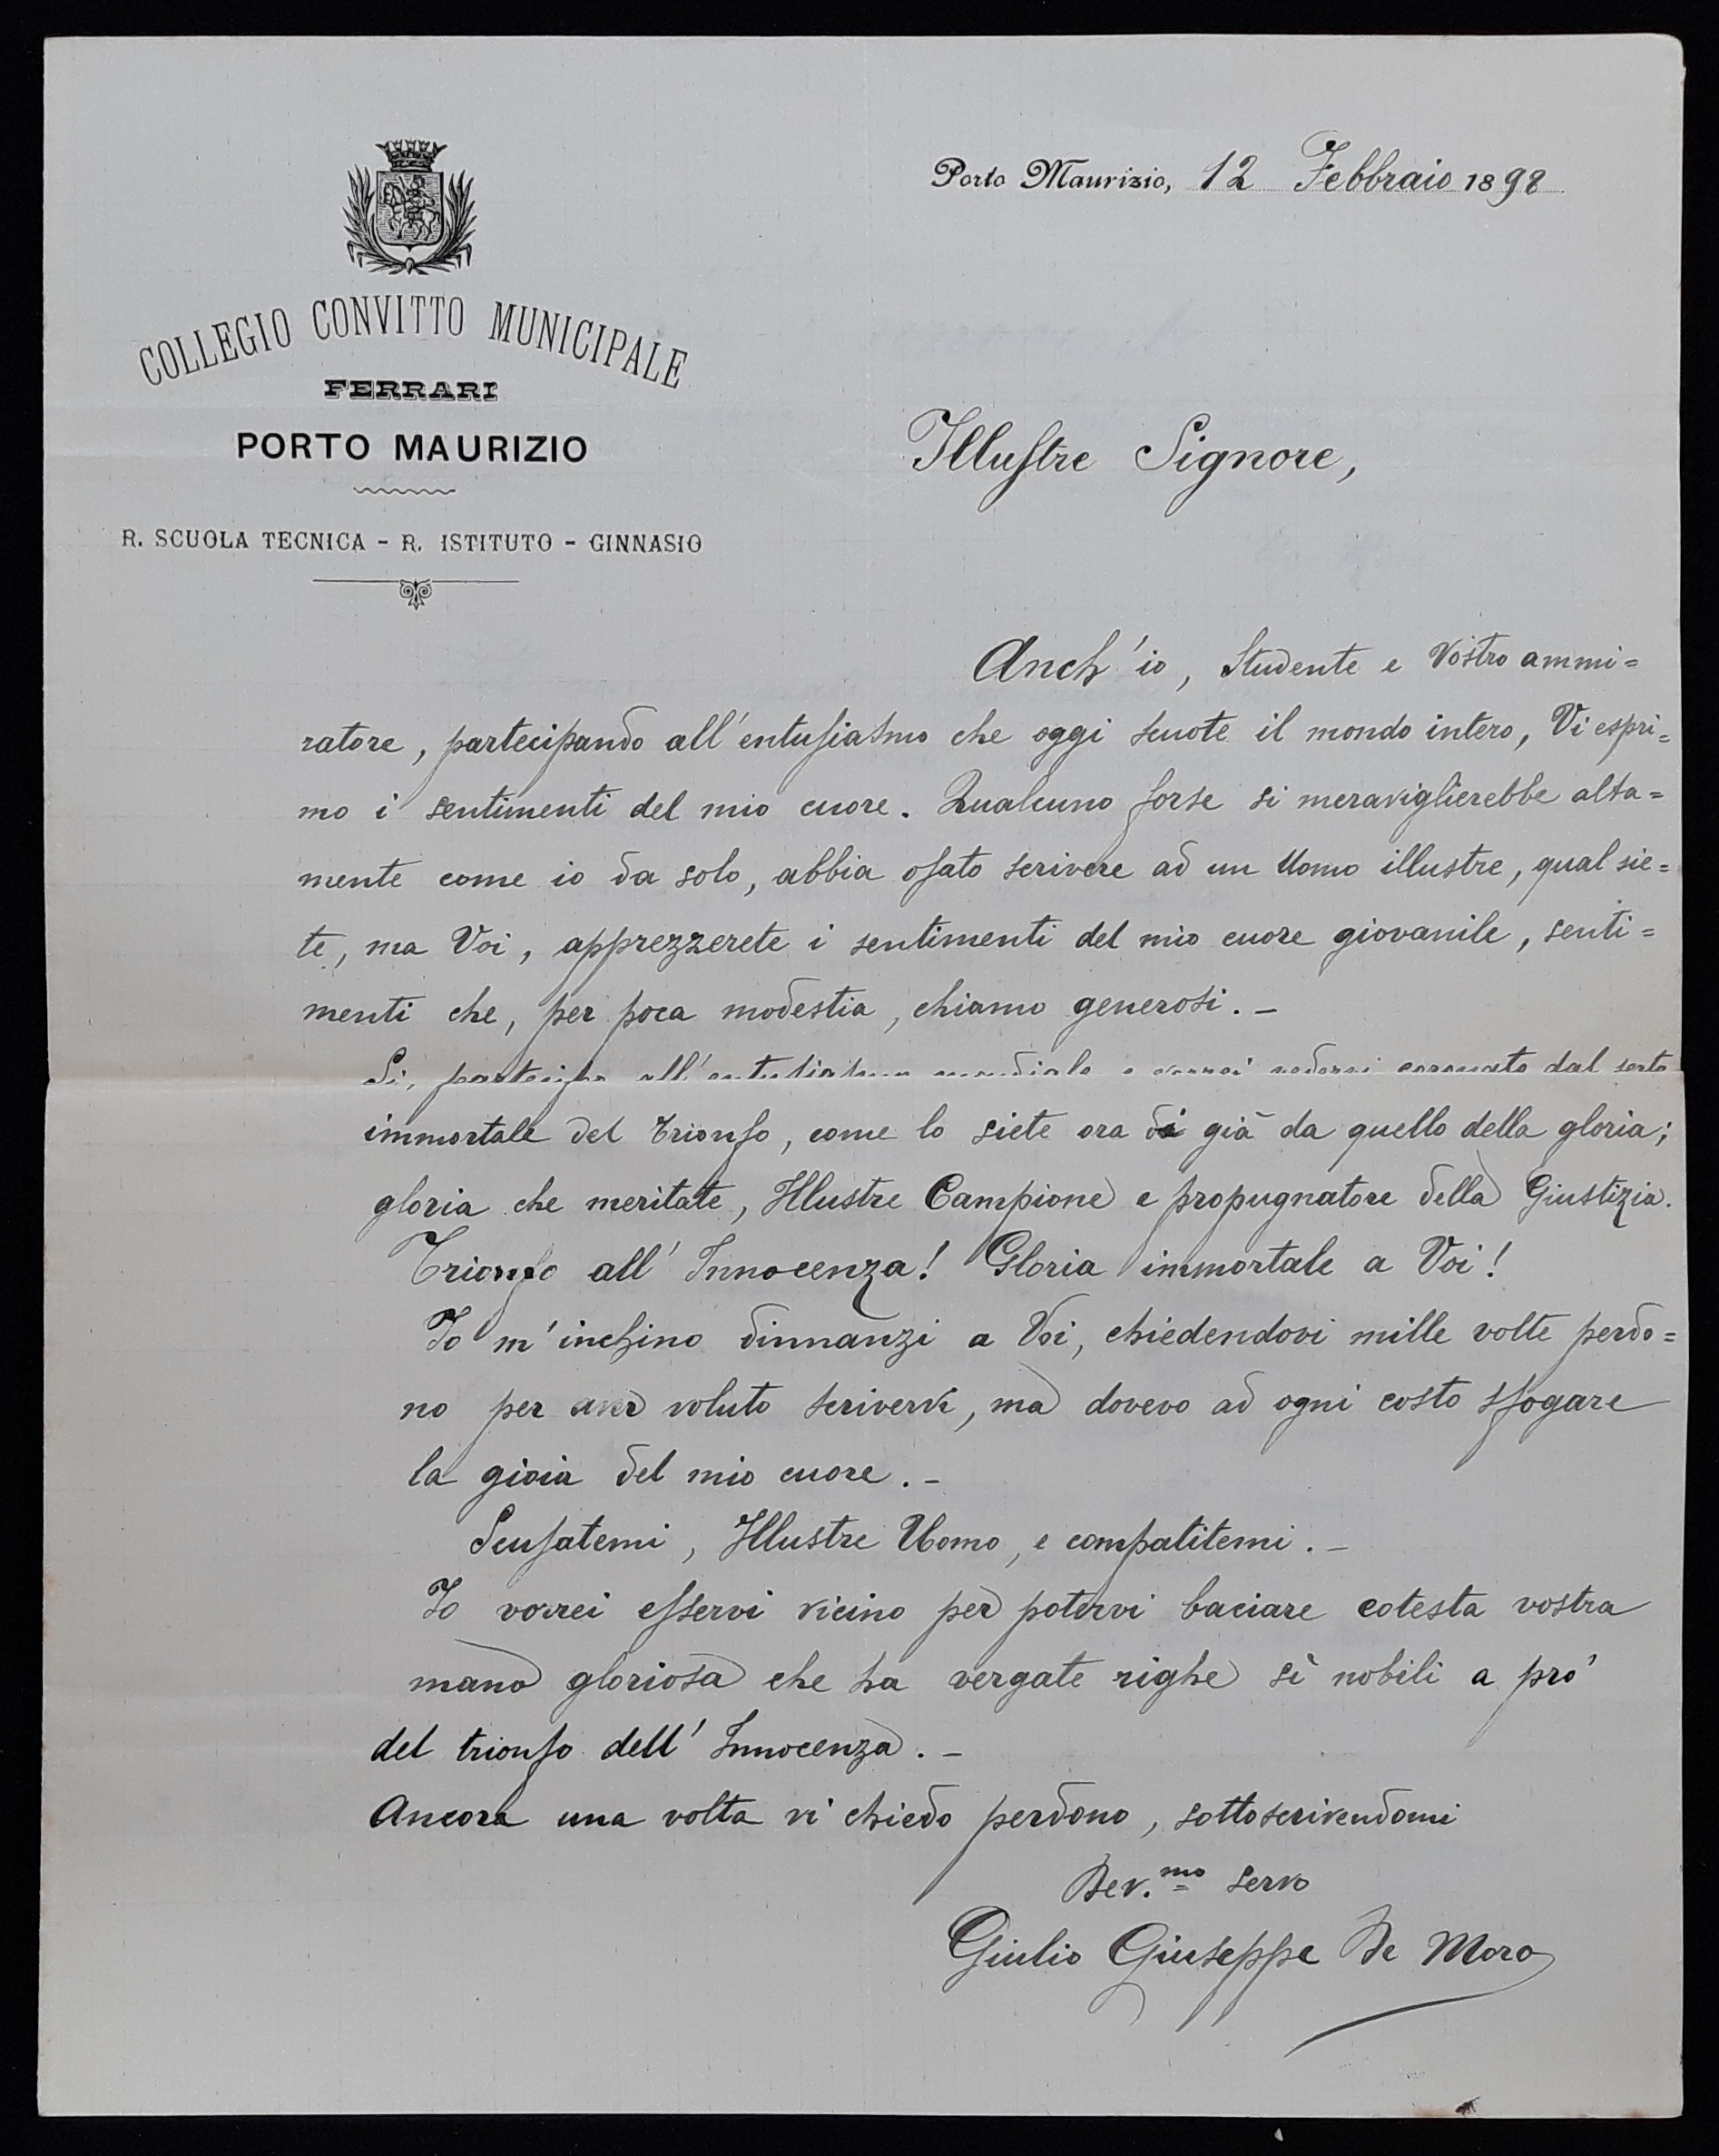 Porto Maurizio, 12 Febbraio 1898
COLLEGIO CONVITTO MUNICIPALE
FERRARI
PORTO MAURIZIO
R. SCUOLA TECNICA - R. ISTITUTO - GINNASIO
Illustre Signore,
Anch'io, studente e Vostro ammi=
ratore, partecipando all'entusiasmo che oggi scuote il mondo intero, Vi espri=
mo i sentimenti del mio cuore. Qualcuno forse si meraviglierebbe alta=
mente come io da solo, abbia osato scrivere ad un Uomo illustre, qual sie=
te, ma Voi, apprezzerete i sentimenti del mio cuore giovanile, senti=
menti che, per poca modestia, chiamo generosi. -
Si, partecipo all'entusiasmo mondiale e vorrei vedervi coronato dal serto
immortale del trionfo, come lo siete ora di già da quello della gloria;
gloria che meritate, Illustre Campione e propugnatore della Giustizia.
Trionfo all'Innocenza! Gloria immortale a Voi!
Io m'inchino dinnanzi a Voi, chiedendovi mille volte perdo=
no per aver voluto scrivervi, ma dovevo ad ogni costo sfogare
la gioia del mio cuore. -
Scusatemi, Illustre Uomo, e compatitemi. -
Io vorrei esservi vicino per potervi baciare cotesta vostra
mano gloriosa che ha vergate righe sì nobili a pro'
del trionfo dell'Innocenza. -
Ancora una volta vi chiedo perdono, sottoscrivendomi
Dev.mo servo
Giulio Giuseppe De Moro